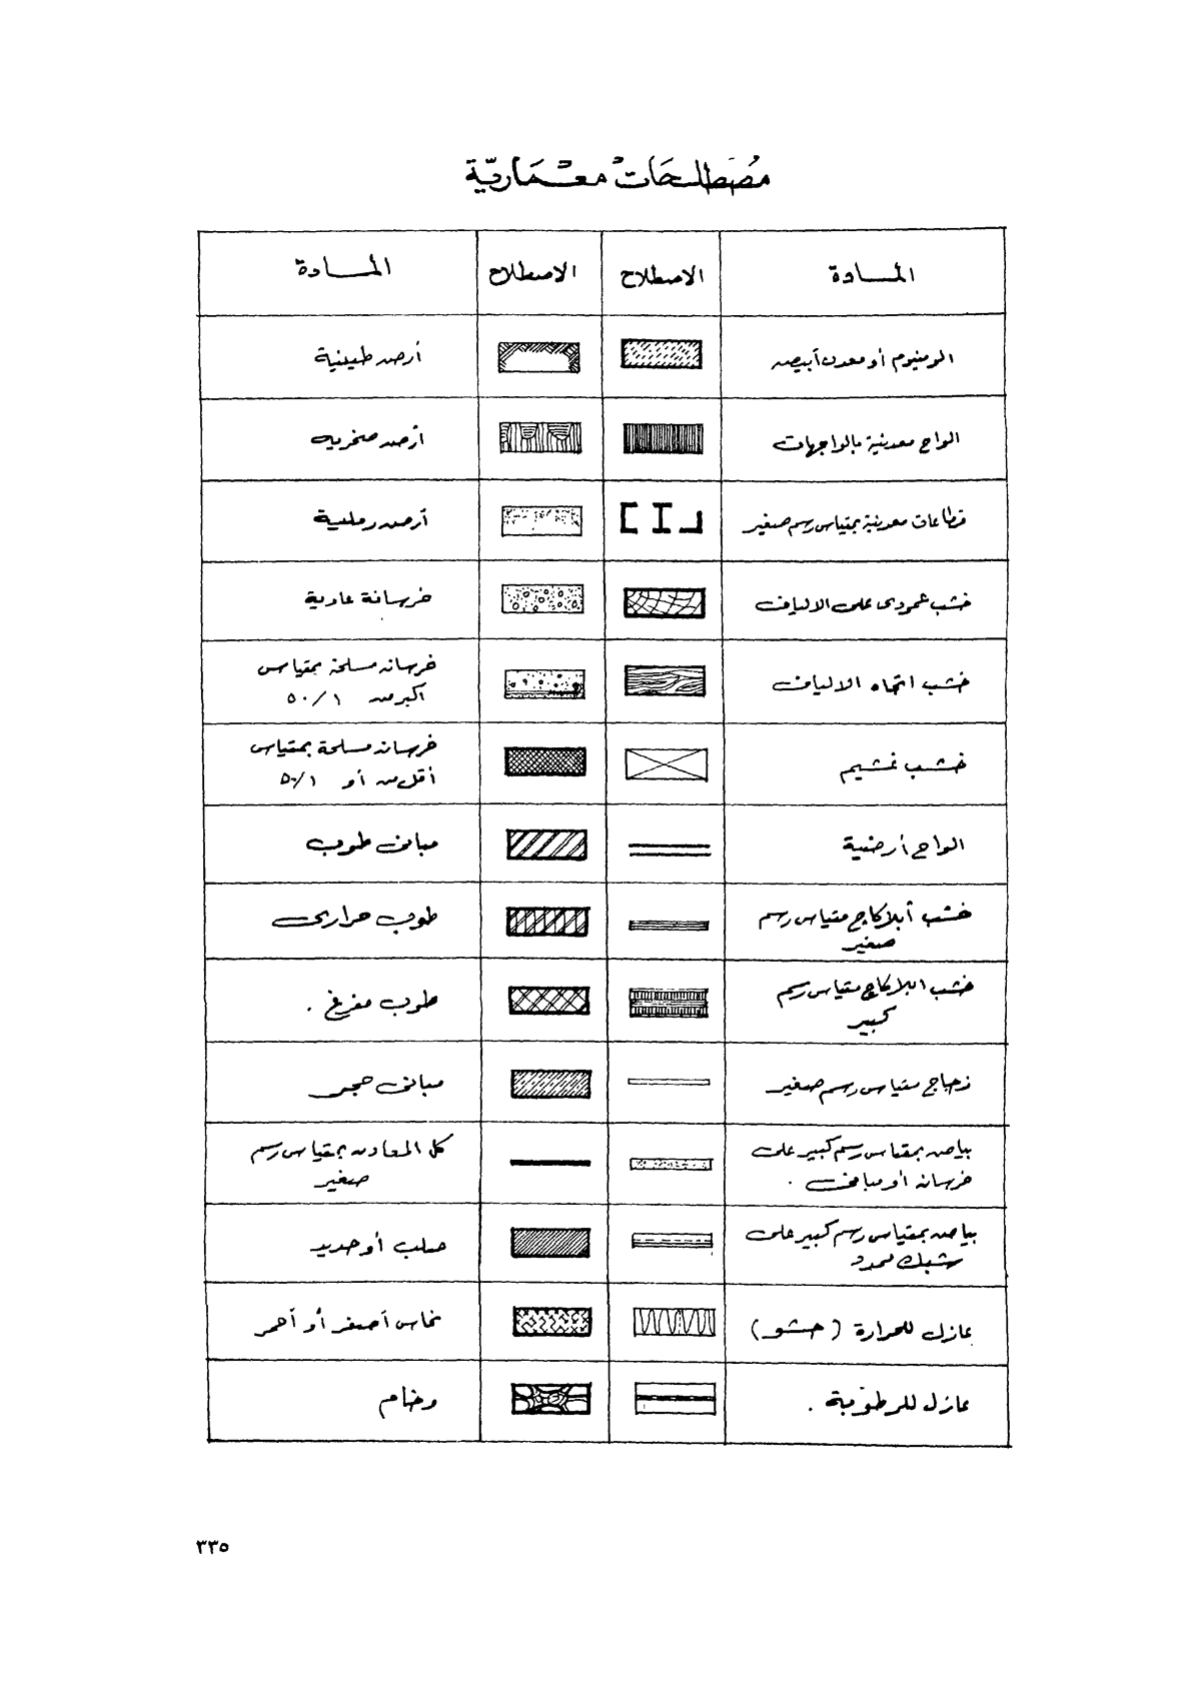 مُصْطَلَحَاتْ مِعْمَارِيّة
المادة
الاصطلاح
الاصطلاح
المادة
الومنيوم أو معدن أبيض
أرض طينية
الواح معدنية بالواجهات
أرض صخريه
قطاعات معدنية بمقياس رسم صغير
أرض رملية
خشب عمودى على الالياف
خرسانة عادية
خشب اتجاه الالياف
خرسانه مسلحة بمقياس
اكبر من ٥٠/١
خشب غشيم
خرسانه مسلحة بمقياس
أقل من أو ٥٠/١
الواح أرضية
مبانى طوب
خشب أبلاكاج مقياس رسم
صغير
طوب حرارى
خشب ابلاكاج مقياس رسم
كبير
طوب مفرغ .
زجاج مقياس رسم صغير
مبانى حجر
بياض بمقاس رسم كبير على
خرسانه أو مبانى .
كل المعادن بمقياس رسم
صغير
بياض بمقياس رسم كبير على
شبك ممدد
صلب أو حديد
عازل للحرارة (حشو)
نحاس أصفر أو أحمر
عازل للرطوبة .
رخام
٣٣٥